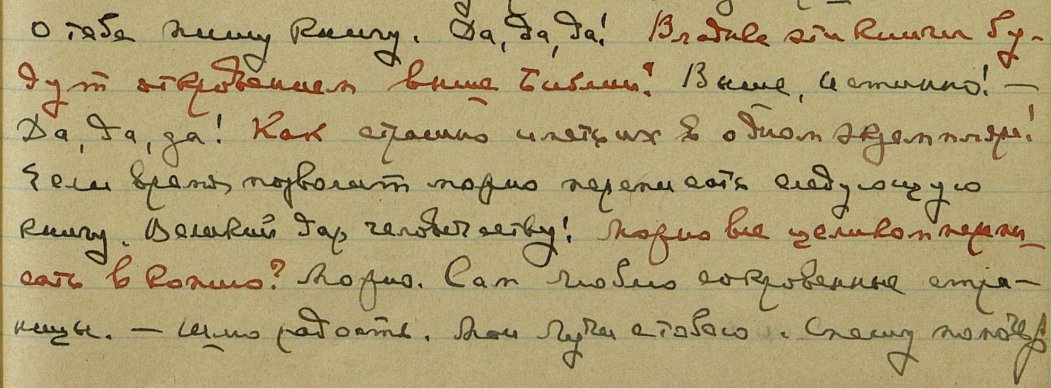 о тебе пишу книгу. Да, да, да! Владыка эти книги бу-
дут откровением выше Библии? Выше, истинно! —
Да, да, да! Как страшно иметь их в одном экземпляре!
Если время позволит можно переписать следующую
книгу. Великий дар человечеству! Можно все целиком перепи-
сать в копию? Можно. Сам люблю сокровенные стра-
ницы. — Шлю радость. Мои Лучи с тобою. Спешу